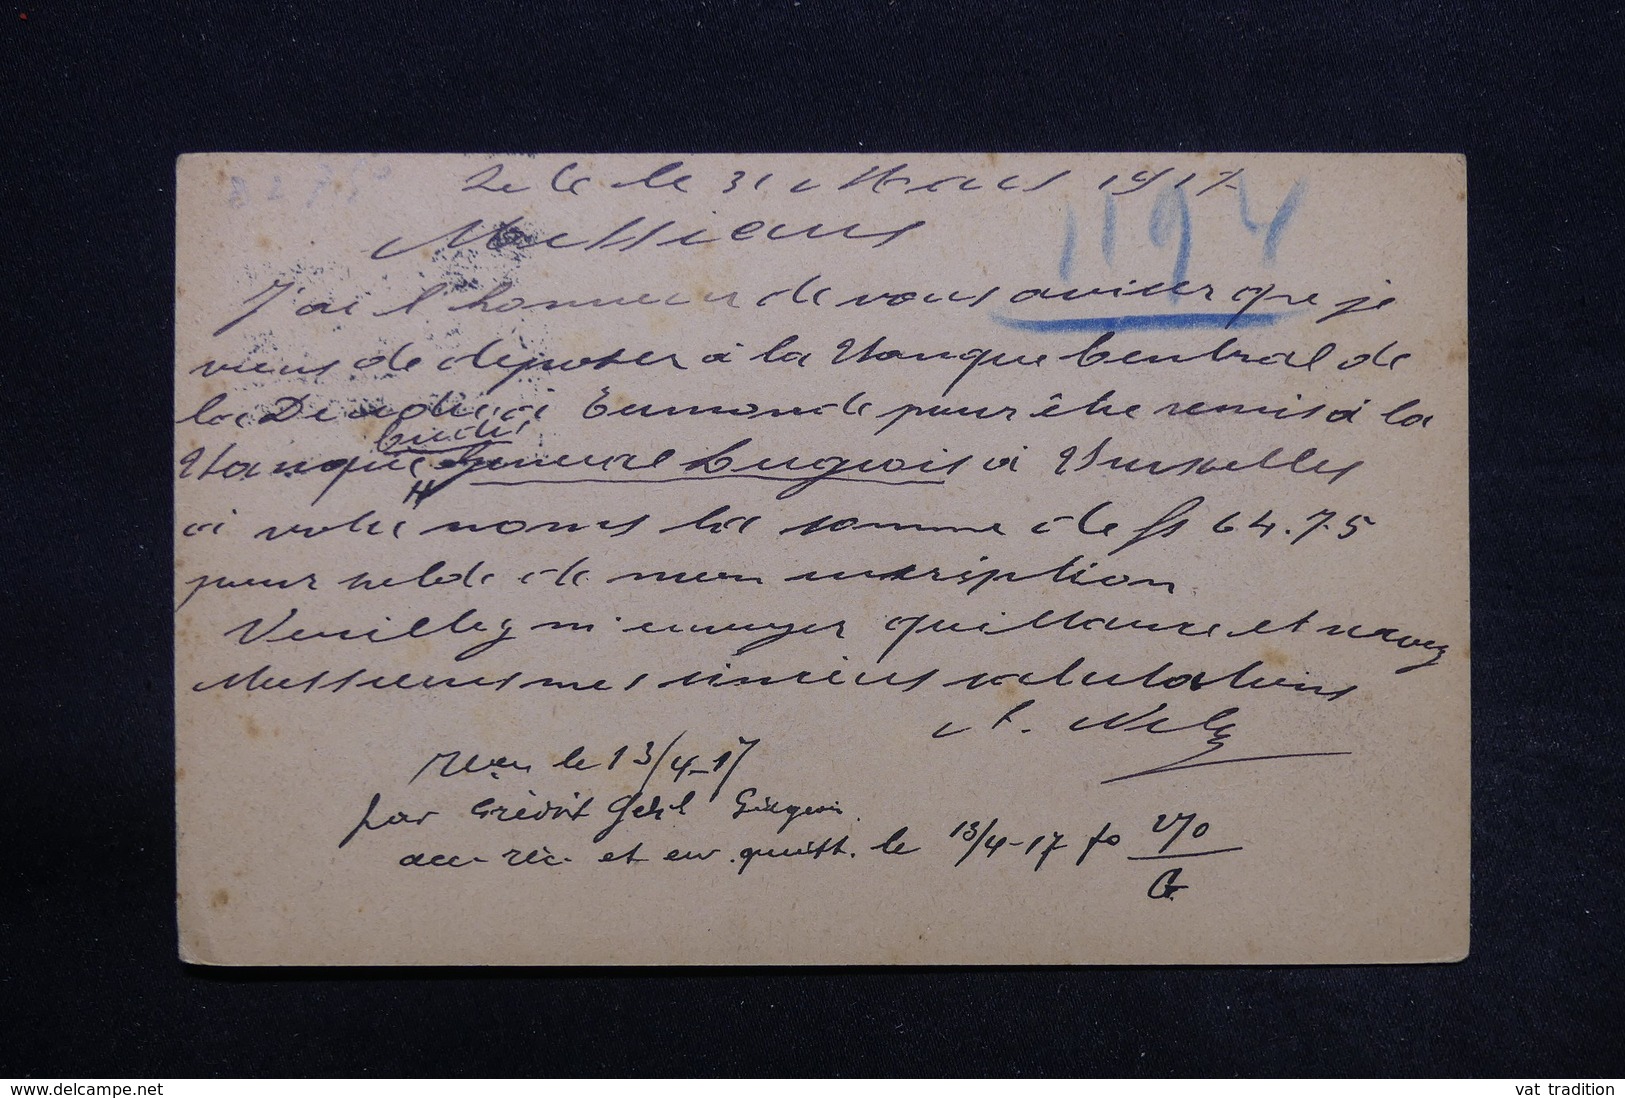 le 31 Mars 1917
1194
Messieurs
J'ai l'honneur de vous aviser que je
viens de deposer à la Banque Central de
la Dendre à Termonde pour être remis à la
Credit
Banque General Liegeois à Bruxelles
à votre noms la somme de fs 64.75
pour solde de mon inscription
Veuillez m'envoyer quittance et recevez
Messieurs mes sincères salutations
reçu le 13/4-17
par Crédit Génl Liégeois.
acc. réc. et env. quitt. le 13/4-17 fo
G.
www.delcampe.net
vat tradition